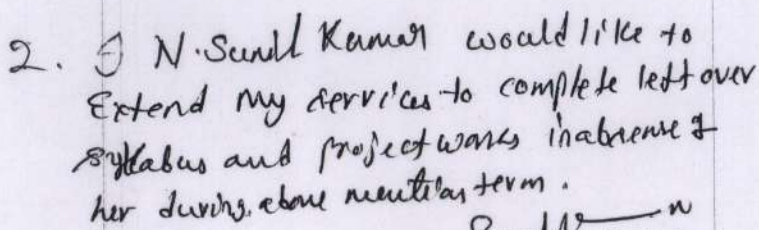 2. I N. Sunil Kumar would like to
Extend my services to complete left over
syllabus and project works in absense of
her during above mention term.